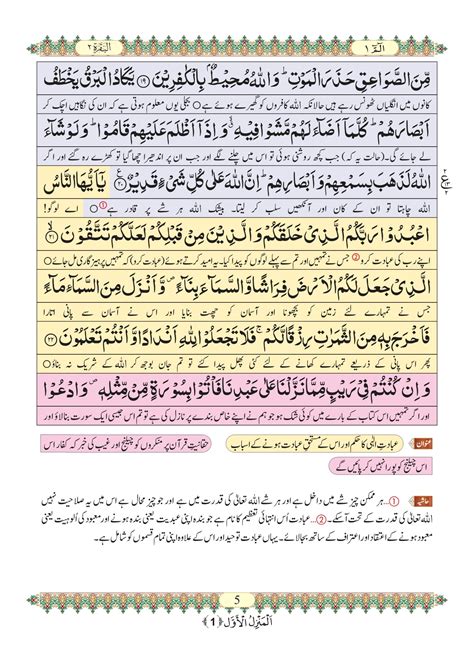 الٓمّٓ ١
البقرة ٢
مِّنَ الصَّوَاعِقِ حَذَرَ الْمَوْتِ ؕ وَاللّٰهُ مُحِیْطٌۢ بِالْكٰفِرِیْنَ ﴿۱۹﴾ یَكَادُ الْبَرْقُ یَخْطَفُ
کانوں میں انگلیاں ٹھونس رہے ہیں حالانکہ اللہ کافروں کو گھیرے ہوئے ہے ○ بجلی یوں معلوم ہوتی ہے کہ ان کی نگاہیں اچک کر
اَبْصَارَهُمْ ؕ كُلَّمَاۤ اَضَآءَ لَهُمْ مَّشَوْا فِیْهِ ۙۗ وَاِذَاۤ اَظْلَمَ عَلَیْهِمْ قَامُوْا ؕ وَلَوْ شَآءَ
لے جائے گی۔ (حالت یہ کہ) جب کچھ روشنی ہوئی تو اس میں چلنے لگے اور جب ان پر اندھیرا چھا گیا تو کھڑے رہ گئے اور اگر
اللّٰهُ لَذَهَبَ بِسَمْعِهِمْ وَاَبْصَارِهِمْ ؕ اِنَّ اللّٰهَ عَلٰی كُلِّ شَیْءٍ قَدِیْرٌ ﴿۲۰﴾ یٰۤاَیُّهَا النَّاسُ
اللہ چاہتا تو ان کے کان اور آنکھیں سلب کر لیتا۔ بیشک اللہ ہر شے پر قادر ہے① ○ اے لوگو!
اعْبُدُوْا رَبَّكُمُ الَّذِیْ خَلَقَكُمْ وَالَّذِیْنَ مِنْ قَبْلِكُمْ لَعَلَّكُمْ تَتَّقُوْنَ ﴿۲۱﴾
اپنے رب کی عبادت کرو② جس نے تمہیں اور تم سے پہلے لوگوں کو پیدا کیا۔ یہ امید کرتے ہوئے (عبادت کرو) کہ تمہیں پرہیزگاری مل جائے ○
الَّذِیْ جَعَلَ لَكُمُ الْاَرْضَ فِرَاشًا وَّالسَّمَآءَ بِنَآءً ۪ وَّاَنْزَلَ مِنَ السَّمَآءِ مَآءً
جس نے تمہارے لئے زمین کو بچھونا اور آسمان کو چھت بنایا اور اس نے آسمان سے پانی اتارا
فَاَخْرَجَ بِهٖ مِنَ الثَّمَرٰتِ رِزْقًا لَّكُمْ ۚ فَلَا تَجْعَلُوْا لِلّٰهِ اَنْدَادًا وَّاَنْتُمْ تَعْلَمُوْنَ ﴿۲۲﴾
پھر اس پانی کے ذریعے تمہارے کھانے کے لئے کئی پھل پیدا کئے تو تم جان بوجھ کر اللہ کے شریک نہ بناؤ ○
وَاِنْ كُنْتُمْ فِیْ رَیْبٍ مِّمَّا نَزَّلْنَا عَلٰی عَبْدِنَا فَاْتُوْا بِسُوْرَةٍ مِّنْ مِّثْلِهٖ ۪ وَادْعُوْا
اور اگر تمہیں اس کتاب کے بارے میں کوئی شک ہو جو ہم نے اپنے خاص بندے پر نازل کی ہے تو تم اس جیسی ایک سورت بنا لاؤ اور
عنوان عبادتِ الٰہی کا حکم اور اس کے مستحقِ عبادت ہونے کے اسباب حقانیتِ قرآن پر منکروں کو چیلنج اور غیب کی خبر کہ کفار اس
اس چیلنج کو پورا نہیں کر پائیں گے
حاشیہ ①...ہر ممکن چیز شے میں داخل ہے اور ہر شے اللہ تعالیٰ کی قدرت میں ہے، اور جو چیز محال ہے اس میں یہ صلاحیت نہیں کہ
اللہ تعالیٰ کی قدرت کے تحت آسکے۔ ②...عبادت اُس انتہائی تعظیم کا نام ہے جو بندہ اپنی عبدیت یعنی بندہ ہونے اور معبود کی اُلوہیت یعنی
معبود ہونے کے اعتقاد اور اعتراف کے ساتھ بجالائے۔ یہاں عبادت توحید اور اس کے علاوہ اپنی تمام قسموں کو شامل ہے۔
5
اَلْمَنْزِلُ الْاَوَّل ﴿1﴾